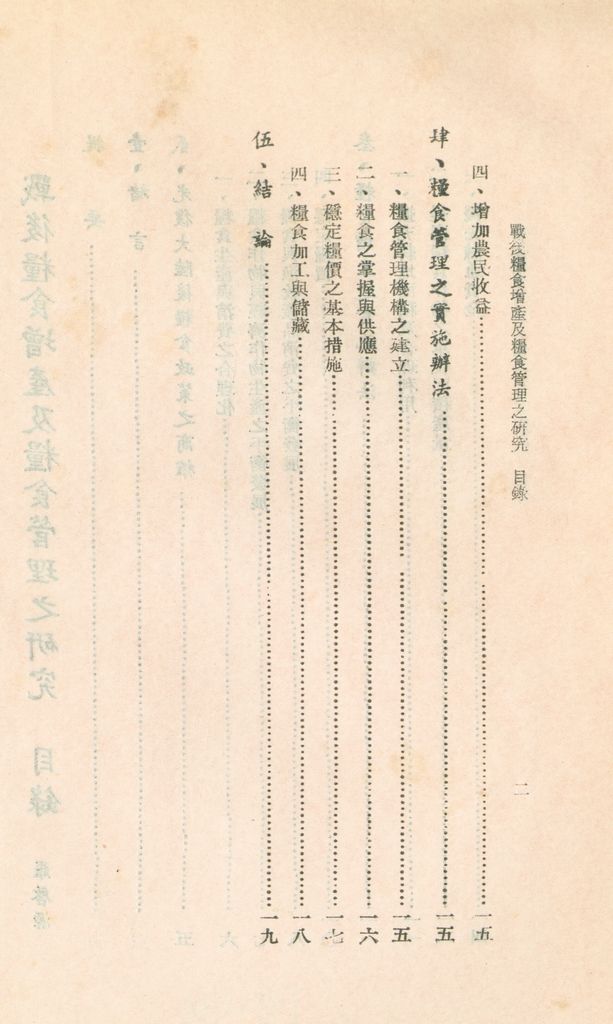 戰後糧食增產及糧食管理之研究 目錄 二
四、增加農民收益 一五
肆、糧食管理之實施辦法 一五
一、糧食管理機構之建立 一五
二、糧食之掌握與供應 一六
三、穩定糧價之基本措施 一七
四、糧食加工與儲藏 一八
伍、結論 一九